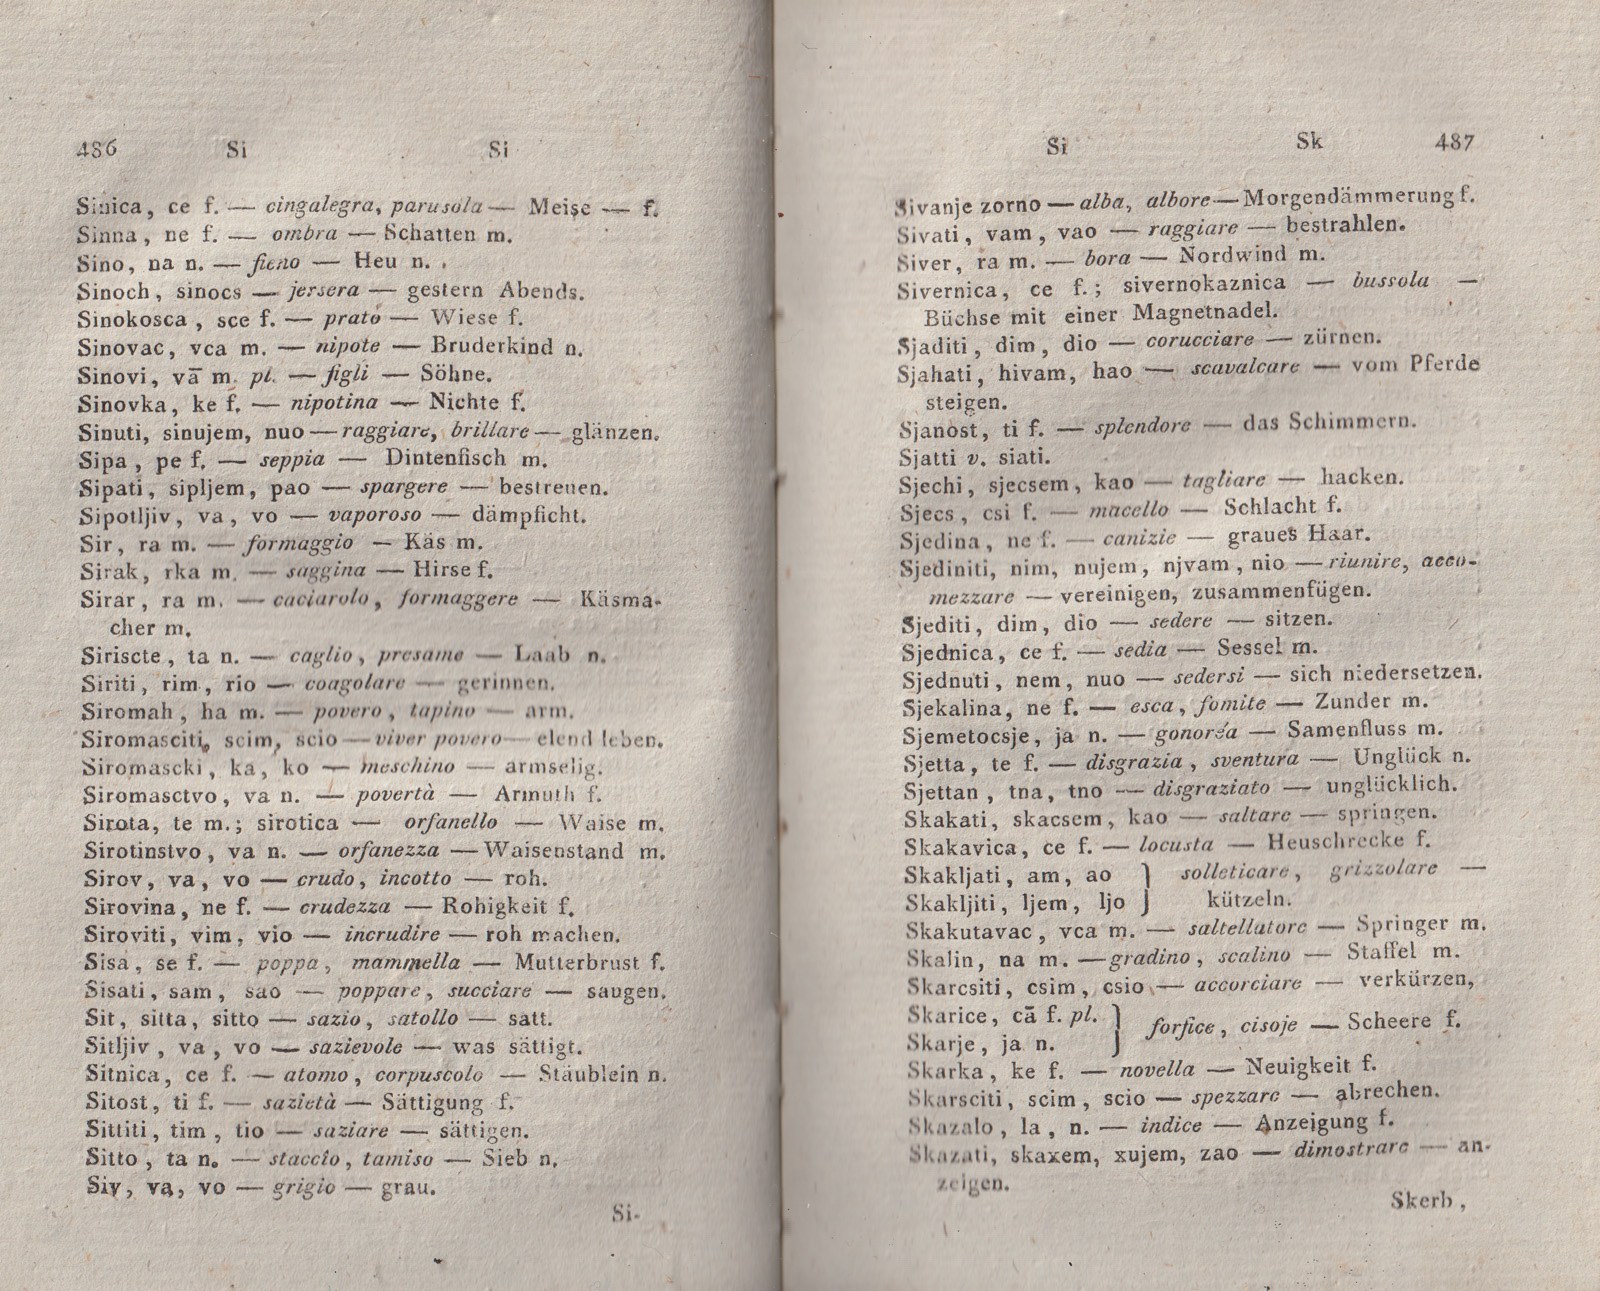 486 Si Si
Sinica, ce f. — cingalegra, parusola — Meise — f.
Sinna, ne f. — ombra — Schatten m.
Sino, na n. — fieno — Heu n.
Sinoch, sinocs — jersera — gestern Abends.
Sinokosca, sce f. — prato — Wiese f.
Sinovac, vca m. — nipote — Bruderkind n.
Sinovi, vā m. pl. — figli — Söhne.
Sinovka, ke f. — nipotina — Nichte f.
Sinuti, sinujem, nuo — raggiare, brillare — glänzen.
Sipa, pe f. — seppia — Dintenfisch m.
Sipati, sipljem, pao — spargere — bestreuen.
Sipotljiv, va, vo — vaporoso — dämpficht.
Sir, ra m. — formaggio — Käs m.
Sirak, rka m. — saggina — Hirse f.
Sirar, ra m. — caciarolo, formaggere — Käsma-
cher m.
Siriscte, ta n. — caglio, presame — Laab n.
Siriti, rim, rio — coagolare — gerinnen.
Siromah, ha m. — povero, tapino — arm.
Siromasciti, scim, scio — viver povero — elend leben.
Siromascki, ka, ko — meschino — armselig.
Siromasctvo, va n. — povertà — Armuth f.
Sirota, te m.; sirotica — orfanello — Waise m.
Sirotinstvo, va n. — orfanezza — Waisenstand m.
Sirov, va, vo — crudo, incotto — roh.
Sirovina, ne f. — crudezza — Rohigkeit f.
Siroviti, vim, vio — incrudire — roh machen.
Sisa, se f. — poppa, mammella — Mutterbrust f.
Sisati, sam, sao — poppare, succiare — saugen.
Sit, sitta, sitto — sazio, satollo — satt.
Sitljiv, va, vo — sazievole — was sättigt.
Sitnica, ce f. — atomo, corpuscolo — Stäublein n.
Sitost, ti f. — sazietà — Sättigung f.
Sittiti, tim, tio — saziare — sättigen.
Sitto, ta n. — staccio, tamiso — Sieb n.
Siv, va, vo — grigio — grau.
Si-
Si Sk 487
Sivanje zorno — alba, albore — Morgendämmerung f.
Sivati, vam, vao — raggiare — bestrahlen.
Siver, ra m. — bora — Nordwind m.
Sivernica, ce f.; sivernokaznica — bussola —
Büchse mit einer Magnetnadel.
Sjaditi, dim, dio — corucciare — zürnen.
Sjahati, hivam, hao — scavalcare — vom Pferde
steigen.
Sjanost, ti f. — splendore — das Schimmern.
Sjatti v. siati.
Sjechi, sjecsem, kao — tagliare — hacken.
Sjecs, csi f. — macello — Schlacht f.
Sjedina, ne f. — canizie — graues Haar.
Sjediniti, nim, nujem, njvam, nio — riunire, acco-
mezzare — vereinigen, zusammenfügen.
Sjediti, dim, dio — sedere — sitzen.
Sjednica, ce f. — sedia — Sessel m.
Sjednuti, nem, nuo — sedersi — sich niedersetzen.
Sjekalina, ne f. — esca, fomite — Zunder m.
Sjemetocsje, ja n. — gonoréa — Samenfluss m.
Sjetta, te f. — disgrazia, sventura — Unglück n.
Sjettan, tna, tno — disgraziato — unglücklich.
Skakati, skacsem, kao — saltare — springen.
Skakavica, ce f. — locusta — Heuschrecke f.
Skakljati, am, ao } solleticare, grizzolare —
Skakljiti, ljem, ljo } kützeln.
Skakutavac, vca m. — saltellatore — Springer m.
Skalin, na m. — gradino, scalino — Staffel m.
Skarcsiti, csim, csio — accorciare — verkürzen,
Skarice, cā f. pl. } forfice, cisoje — Scheere f.
Skarje, ja n. }
Skarka, ke f. — novella — Neuigkeit f.
Skarsciti, scim, scio — spezzare — abrechen.
Skazalo, la, n. — indice — Anzeigung f.
Skazati, skaxem, xujem, zao — dimostrare — an-
zeigen.
Skerb,